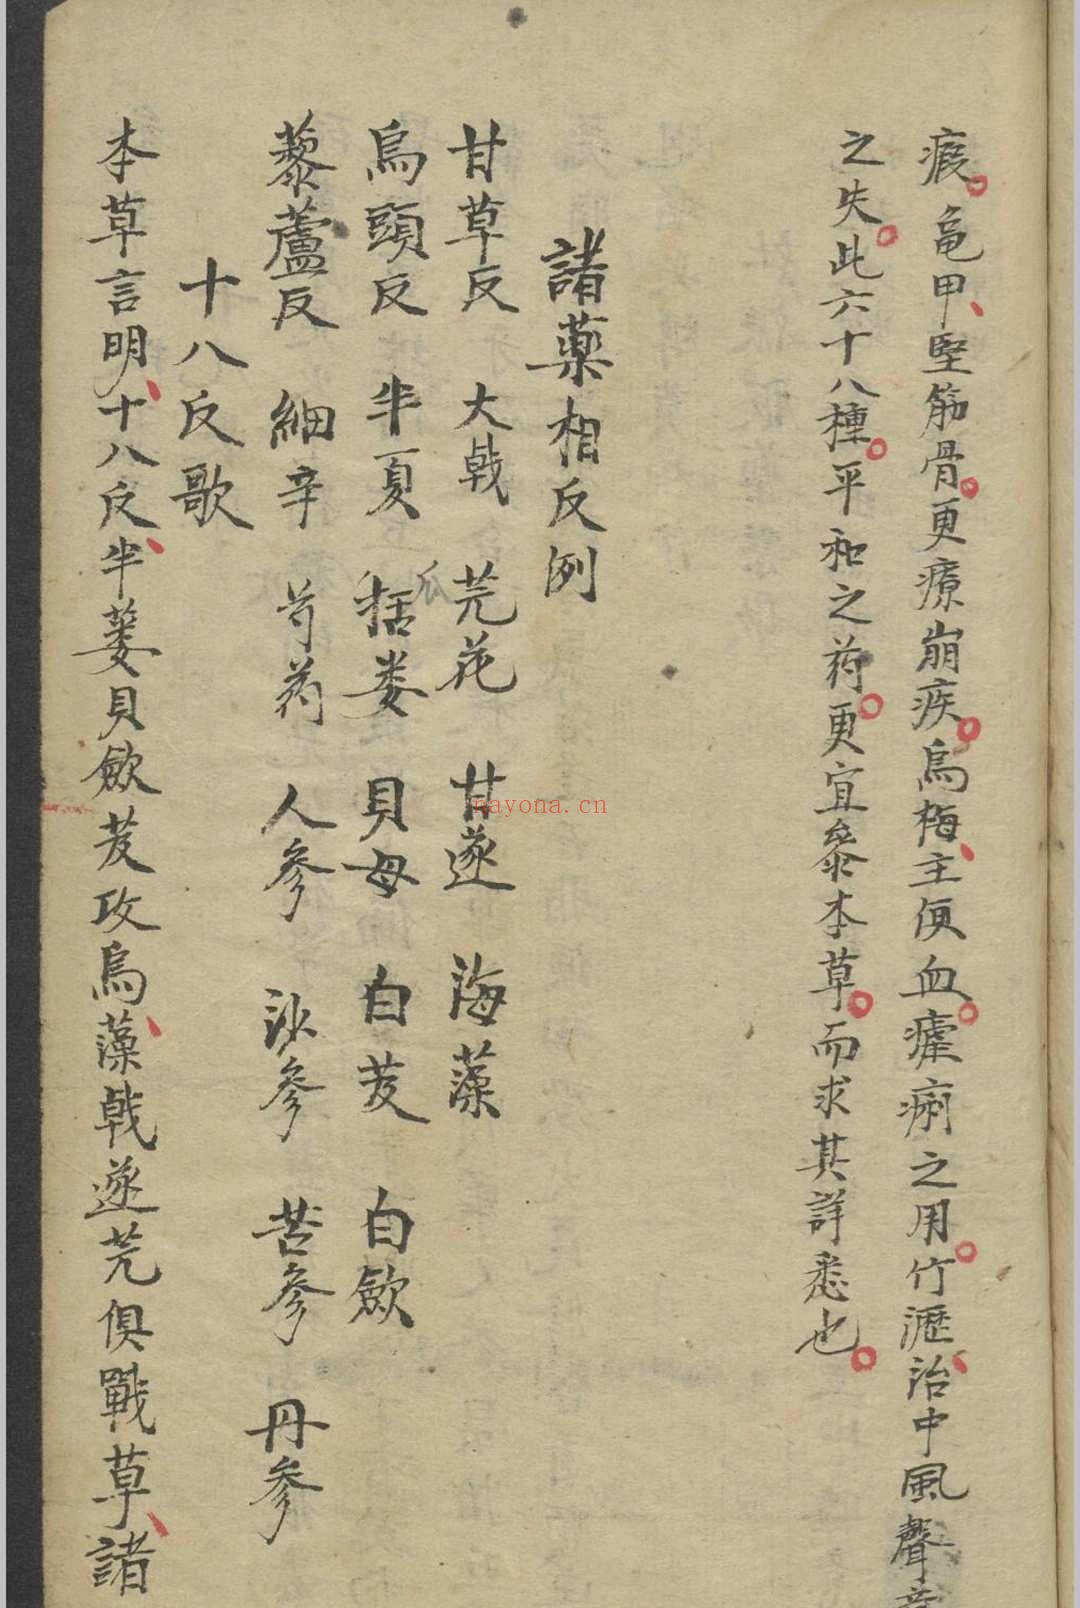 瘕龜甲堅筋骨更療崩疾烏梅主便血瘧痢之用竹瀝治中風聲音
之失此六十八種平和之药更宜參本草而求其詳悉也
諸藥相反例
甘草反　大戟　芫花　甘遂　海藻
烏頭反　半夏　栝蒌　貝母　白芨　白歛
瓜
藜蘆反　細辛　芍药　人參　沙參　苦參　丹參
十八反歌
本草言明十八反半蒌貝歛芨攻烏藻戟遂芫俱戰草諸
nayona.cn